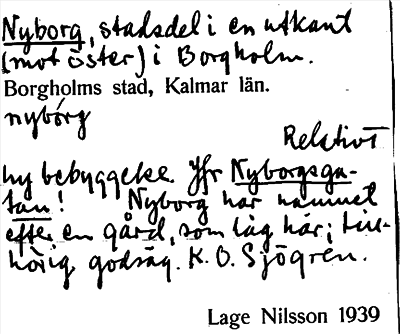 Nyborg, stadsdel i en utkant
(mot öster) i Borgholm.
Borgholms stad, Kalmar län.
nybórg
Relativt
ny bebyggelse. Jfr Nyborgsga-
tan! Nyborg har namnet
efter en gård, som låg här; till-
hörig godsäg. K. O. Sjögren.
Lage Nilsson 1939